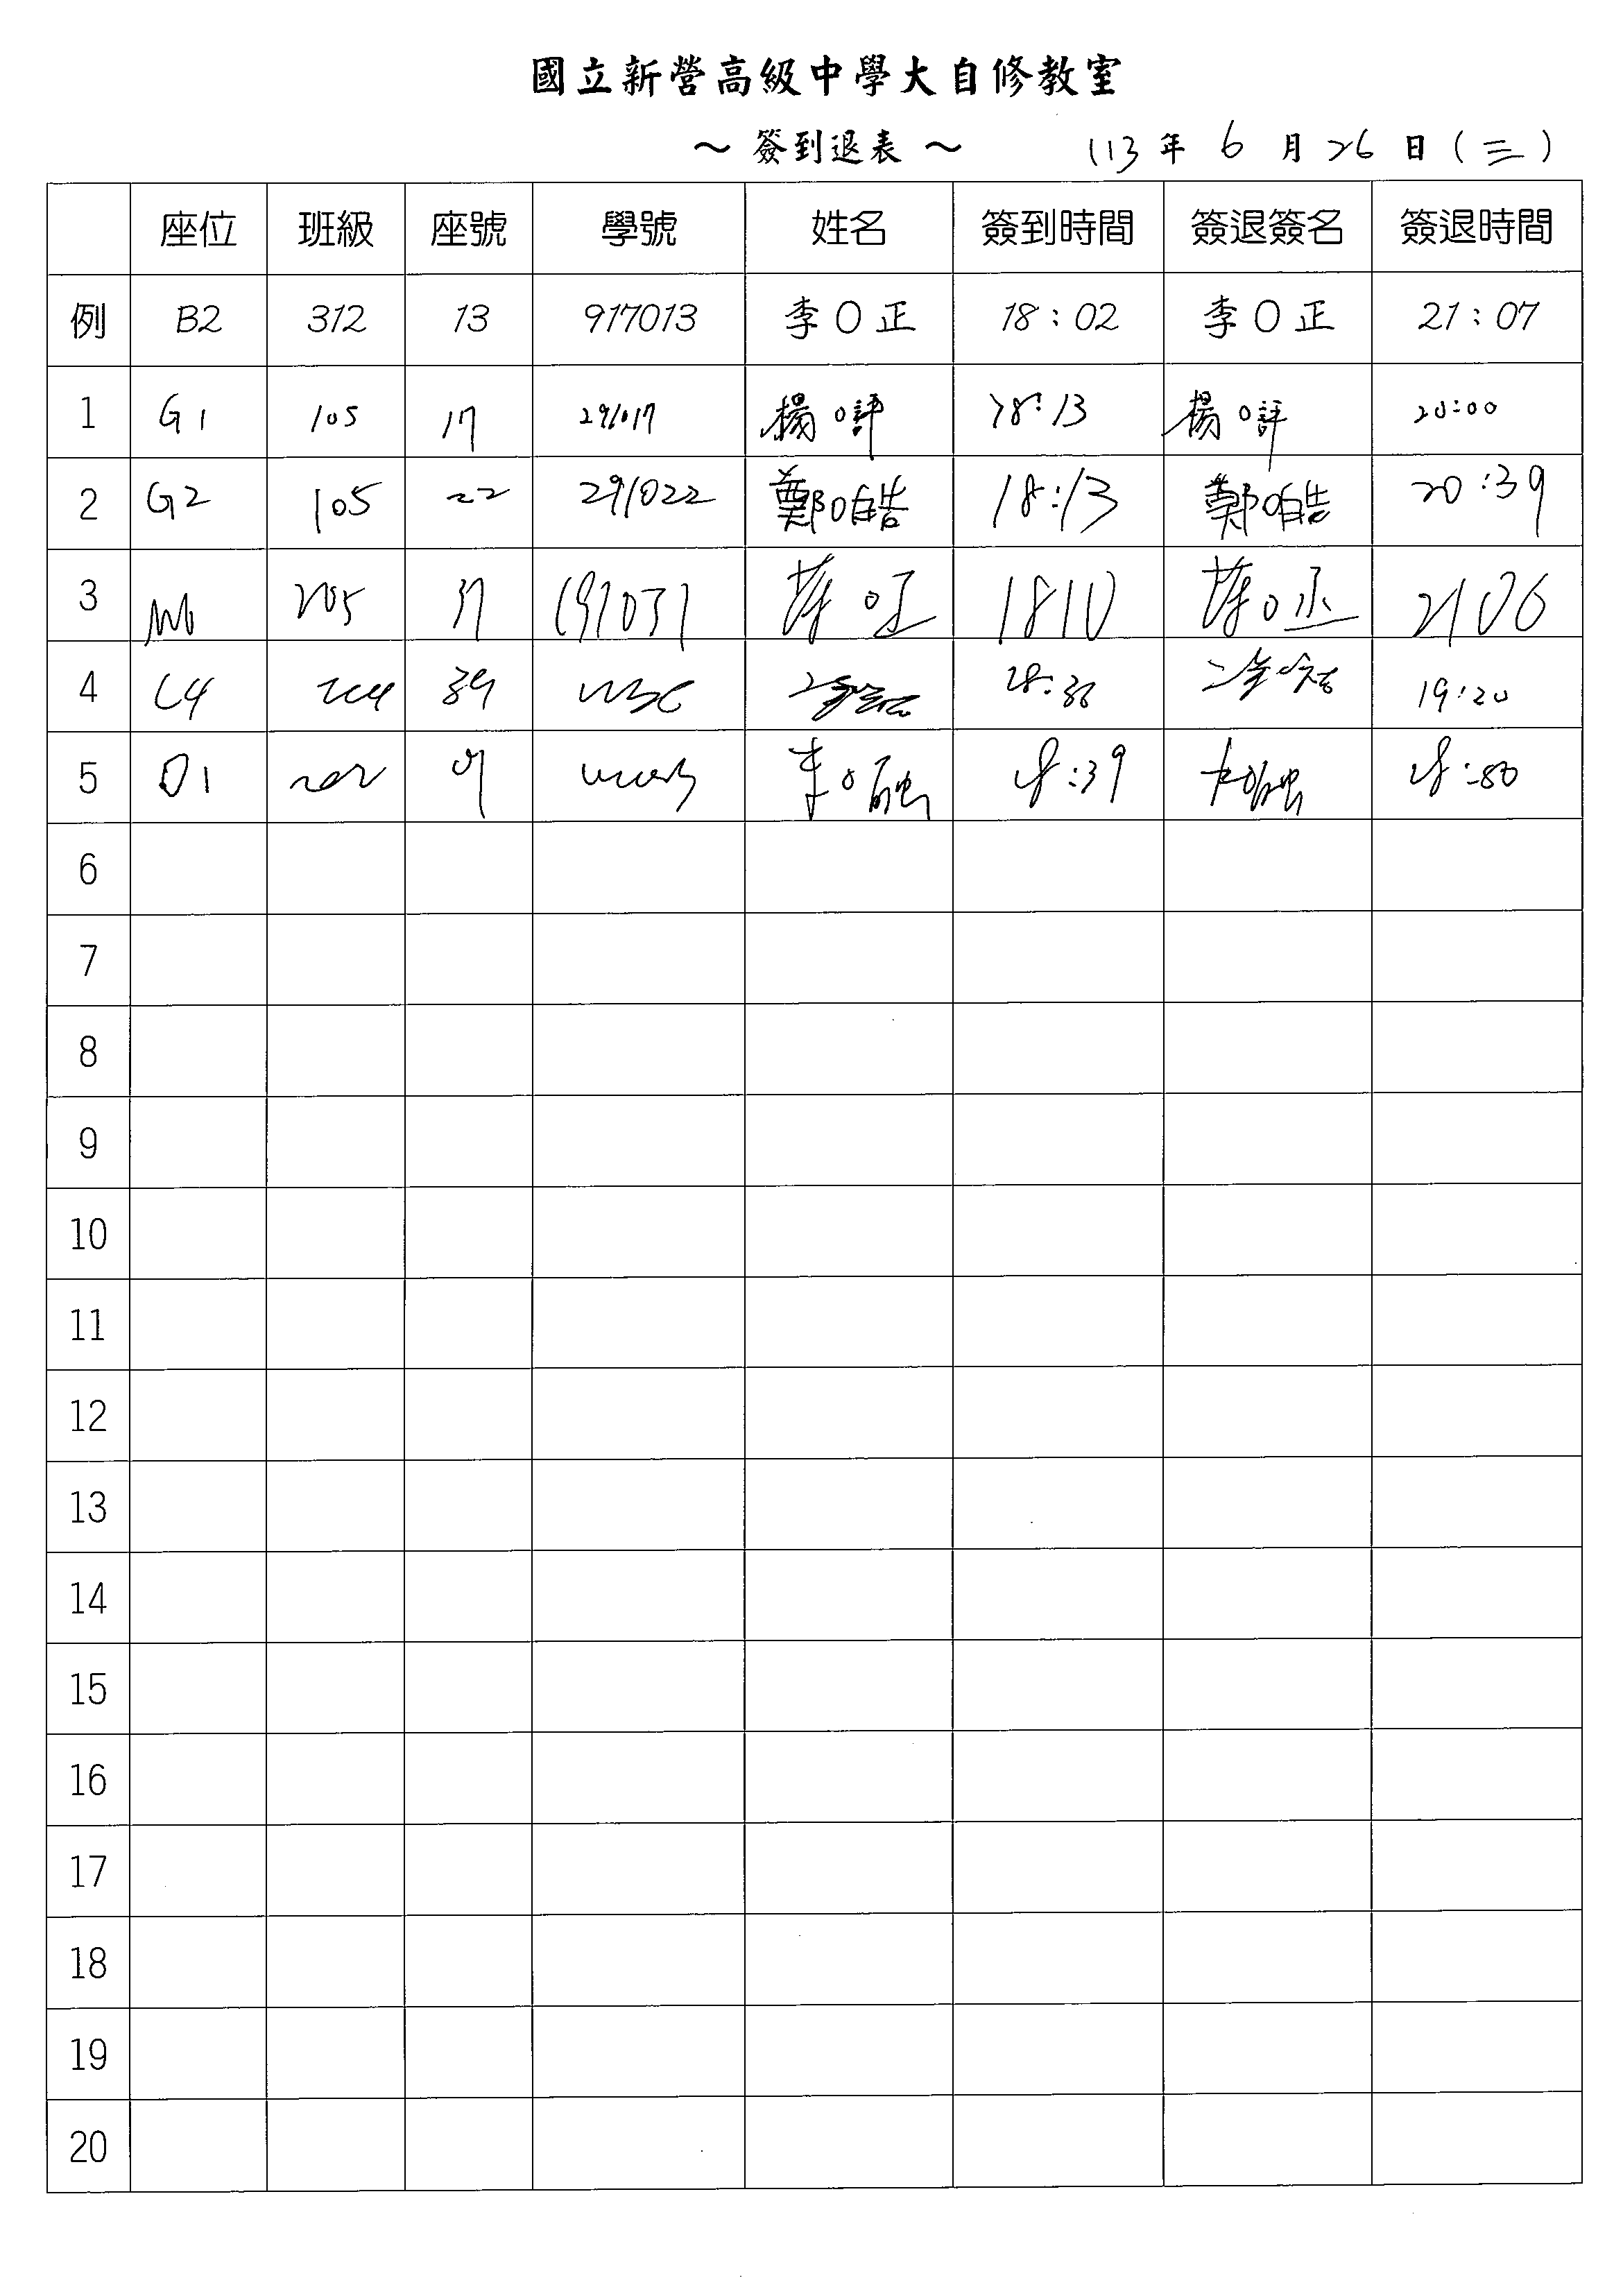 國立新營高級中學大自修教室
～ 簽到退表 ～ 113 年 6 月 26 日 ( 三 )
座位 班級 座號 學號 姓名 簽到時間 簽退簽名 簽退時間
例 B2 312 13 917013 李O正 18:02 李O正 21:07
1 G1 105 17 291017 楊O評 18:13 楊O評 20:00
2 G2 105 22 291022 鄭O皓 18:13 鄭O皓 20:39
3 205 1810 2106
4 C4 204 39 19:20
5 D1 李O融 18:39
6
7
8
9
10
11
12
13
14
15
16
17
18
19
20